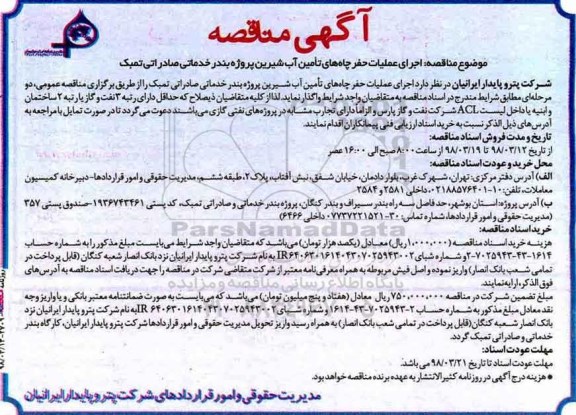 آگهی مناقصه
موضوع مناقصه: اجرای عملیات حفر چاه‌های تأمین آب شیرین پروژه بندر خدماتی صادراتی تمبک
شرکت پترو پایدار ایرانیان در نظر دارد اجرای عملیات حفر چاه‌های تأمین آب شیرین پروژه بندر خدماتی صادراتی تمبک را از طریق برگزاری مناقصه عمومی، دو
مرحله‌ای مطابق شرایط مندرج در اسناد مناقصه به متقاضیان واجد شرایط واگذار نماید. لذا از کلیه متقاضیان ذیصلاح که حداقل دارای رتبه ۳ نفت و گاز یا رتبه ۲ ساختمان
و ابنیه یا داخل لیست ACL شرکت نفت و گاز پارس و الزاماً دارای تجارب مشابه در پروژه‌های نفتی گازی می‌باشند دعوت می‌گردد تا در صورت تمایل با مراجعه به
آدرس های ذیل الذکر نسبت به خرید اسناد ارزیابی فنی پیمانکاران اقدام نمایند.
تاریخ و مدت فروش اسناد مناقصه:
از تاریخ ۹۸/۰۳/۱۲ تا ۹۸/۰۳/۱۹ از ساعت ۸:۰۰ صبح الی ۱۶:۰۰ عصر
محل خرید و عودت اسناد مناقصه:
الف) آدرس دفتر مرکزی: تهران، شهرک غرب، بلوار دادمان، خیابان شفق، نبش آفتاب، پلاک ۲، طبقه ششم، مدیریت حقوقی و امور قراردادها- دبیرخانه کمیسیون
معاملات، تلفن: ۱۰-۰۲۱۸۸۵۷۶۴۰۱، داخلی ۲۵۸۱ و ۲۵۸۴
ب) آدرس پروژه: استان بوشهر، حد فاصل سه راه بندر سیراف و بندر کنگان، پروژه بندر خدماتی و صادراتی تمبک، کد پستی ۱۹۳۶۷۴۳۴۶۱-صندوق پستی ۳۵۷
(مدیریت حقوقی و امور قراردادها، شماره تماس: ۳۰-۰۷۷۳۷۲۲۱۵۲۱ داخلی ۶۴۶۶)
خرید اسناد مناقصه:
هزینه خرید اسناد مناقصه ۱،۰۰۰،۰۰۰ ریال) معادل (یکصد هزار تومان) می‌باشد که متقاضیان واجد شرایط می‌بایست مبلغ مذکور را به شماره حساب
تمامی شعب بانک انصار) واریز نموده و اصل فیش مربوطه به همراه معرفی‌نامه معتبر از شرکت متقاضی شرکت در مناقصه را جهت دریافت اسناد مناقصه به آدرس‌های
فوق الذکر، ارایه نمایند.
مبلغ تضمین شرکت در مناقصه ۷۵۰،۰۰۰،۰۰۰ ریال معادل (هفتاد و پنج میلیون تومان) می‌باشد که می‌بایست به صورت ضمانتنامه معتبر بانکی و یا واریز وجه
بانک انصار شعبه کنگان (قابل پرداخت در تمامی شعب بانک انصار) به همراه رسید واریز تحویل مدیریت حقوقی و امور قراردادها شرکت پترو پایدار ایرانیان، کارگاه بندر
خدماتی و صادراتی تمبک گردد.
مهلت عودت اسناد:
مهلت عودت اسناد تا تاریخ ۹۸/۰۳/۲۱ می باشد.
* هزینه درج آگهی در روزنامه کثیر الانتشار به عهده برنده مناقصه خواهد بود.
مدیریت حقوقی و امور قراردادهای شرکت پترو پایدار ایرانیان
ParsNamadData
پایگاه اطلاع رسانی مناقصه و مزایده